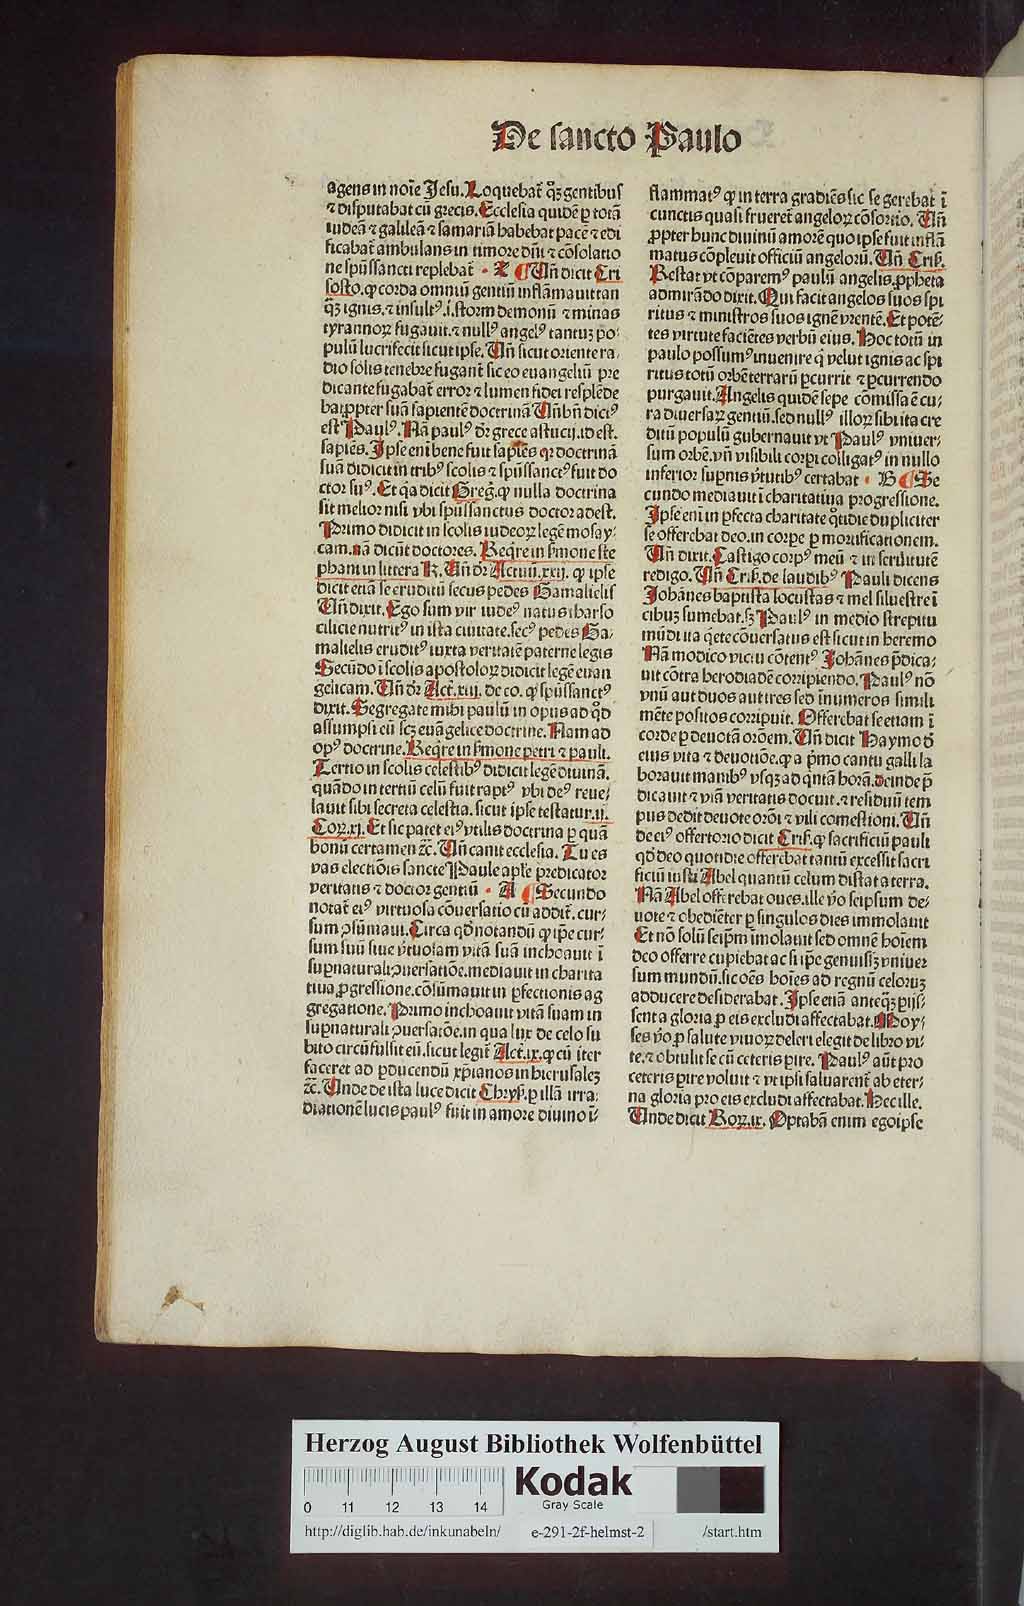 De sancto Paulo
agens in noīe Jesu. Loquebat̄ qꝫ gentibus
⁊ disputabat cū grecis. Ecclesia quidē ꝑ totā
iudeā ⁊ galileā ⁊ samariā habebat pacē ⁊ edi
ficabat̄ ambulans in timore dn̄i ⁊ cōsolatio
ne spūssancti replebat̄ · X ¶ Un̄ dicit Cri
sosto. ꝙ corda omniū gentiū inflāmauit tan
qꝫ ignis. ⁊ insultꝰ .i. storm demonū ⁊ minas
tyrannoꝝ fugauit. ⁊ nullꝰ angelꝰ tantuꝫ po⸗
pulū lucrifecit sicut ipse. Un̄ sicut oriente ra⸗
dio solis tenebre fugant̄ sic eo euangeliū pre
dicante fugabat̄ error ⁊ lumen fidei resplēde
bat ꝓpter suā sapientē doctrinā Un̄ bn̄ dictꝰ
est Paulꝰ. Nā paulꝰ dr̄ grece astucꝰ. id est.
sapiēs. Ipse eni bene fuit sapiēs qꝛ doctrinā
suā didicit in tribꝰ scolis ⁊ spūssanctꝰ fuit do
ctor suꝰ. Et q̄a dicit Greg̃. ꝙ nulla doctrina
sit melior nisi vbi spūssanctus doctor adest.
Primo didicit in scolis iudeoꝝ legē mosay⸗
cam. nā dicūt doctores. Req̄re in ẜmone ste
phani in littera K. Un̄ dr̄ Actuū. xxij. ꝙ ipse
dicit etiā se eruditū secus pedes Gamalielis
Un̄ dixit. Ego sum vir iudeꝰ natus tharso
cilicie nutritꝰ in ista ciuitate. secꝰ pedes Ga⸗
malielis eruditꝰ iuxta veritatē paterne legis
Secūdo ī scolis apostoloꝝ didicit legē euan
gelicam. Un̄ dr̄ Act̄. xiij. de eo. ꝙ spūssanctꝰ
dixit. Segregate mihi paulū in opus ad qd̄
assumpsi eū scꝫ euāgelice doctrine. Nam ad
opꝰ doctrine. Req̄re in ẜmone petri ⁊ pauli.
Tertio in scolis celestibꝰ didicit legē diuinā.
quādo in tertiū celū fuit raptꝰ vbi deꝰ reue⸗
lauit sibi secreta celestia. sicut ipse testatur. ij.
Coꝝ. xj. Et sic patet eiꝰ vtilis doctrina ꝑ quā
bonū certamen ⁊c̄. Un̄ canit ecclesia. Tu es
vas electiōis sancte Paule apl̄e predicator
veritatis ⁊ doctor gentiū · A ¶ Secundo
notat̄ eiꝰ virtuosa cōuersatio cū addit̄. cur⸗
sum ꝯsūmaui. Circa qd̄ notandū ꝙ ip̄e cur⸗
sum suū siue v̄tuosam vitā suā inchoauit ī
suꝑnaturali ꝯuersatiōe. mediauit in charita
tiua ꝓgressione. cōsūmauit in ꝑfectionis ag
gregatione. Primo inchoauit vitā suam in
suꝑnaturali ꝯuersatōe. in qua lux de celo su
bito circūfulsit eū. sicut legit̄ Act̄. ix. ꝙ cū iter
faceret ad ꝑducendū xp̄ianos in hierusaleꝫ
⁊c̄. Unde de ista luce dicit Chryſ. ꝑ illā irra⸗
diationē lucis paulꝰ fuit in amore diuino ī⸗
flammatꝰ ꝙ in terra gradiēs sic se gerebat ī
cunctis quasi frueret̄ angeloꝝ cōsortio. Un̄
ꝓpter hunc diuinū amorē quo ipse fuit inflā
matus cōpleuit officiū angeloruꝫ. Un̄ Criſ.
Restat vt cōparemꝰ paulū angelis. ꝓpheta
admirādo dixit. Qui facit angelos suos spi
ritus ⁊ ministros suos ignē vrentē. Et potē⸗
tes virtute faciētes verbū eius. Hoc totū in
paulo possumꝰ inuenire q̄ velut ignis ac spi
ritus totū orbē terrarū ꝑcurrit ⁊ ꝑcurrendo
purgauit. Angelis quidē sepe cōmissa ē cu⸗
ra diuersaꝝ gentiū. sed nullꝰ illoꝝ sibi ita cre
ditū populū gubernauit vt Paulꝰ vniuer⸗
sum orbē. vn̄ visibili corꝑi colligatꝰ in nullo
inferior suꝑnis v̄tutibꝰ certabat · B ¶ Se
cundo mediauit ī charitatiua progressione.
Ipse eni in ꝑfecta charitate q̄tidie dupliciter
se offerebat deo. in corꝑe ꝑ mortificationem.
Un̄ dixit. Castigo corpꝰ meū ⁊ in seruitutē
redigo. Un̄ Criſ. de laudibꝰ Pauli dicens
Johānes baptista locustas ⁊ mel siluestre ī
cibuꝫ sumebat. sꝫ Paulꝰ in medio strepitu
mūdi ita q̄ete cōuersatus est sicut in heremo
Nā modico victu cōtentꝰ Johānes p̄dica⸗
uit cōtra herodiadē corripiendo. Paulꝰ nō
vnū aut duos aut tres sed īnumeros simili
mēte positos corripuit. Offerebat se etiam ī
corde ꝑ deuotā orōem. Un̄ dicit Haymo d̄
eius vita ⁊ deuotiōe. ꝙ a p̄mo cantu galli la
borauit manibꝰ vsqꝫ ad q̄ntā horā. deinde p̄
dicauit ⁊ viā veritatis docuit. ⁊ residuū tem
pus dedit deuote orōi ⁊ vili comestioni. Un̄
de eiꝰ offertorio dicit Criſ. ꝙ sacrificiū pauli
qd̄ deo quottidie offerebat tantū excessit sacri
ficiū iusti Abel quantū celum distat a terra.
Nā Abel offerebat oues. ille v̄o seipsum de⸗
uote ⁊ obediēter ꝑ singulos dies immolauit
Et nō solū seip̄m īmolauit sed omnē hoīem
deo offerre cupiebat ac si ip̄e genuissꝫ vniuer
sum mundū. sic oēs hoīes ad regnū celoruꝫ
adducere desiderabat. Ipse etiā anteqꝫ ꝑijs⸗
sent a gloria ꝑ eis excludi affectabat. Moy⸗
ses v̄o ꝑ salute viuoꝝ deleri elegit de libro vi⸗
te. ⁊ obtulit se cū ceteris ꝑire. Paulꝰ aūt pro
ceteris ꝑire voluit ⁊ vt ipsi saluarent̄ ab eter⸗
na gloria pro eis excludi affectabat. Hec ille.
Unde dicit Roꝝ. ix. Optabā enim ego ipse
Herzog August Bibliothek Wolfenbüttel
Kodak
Gray Scale
0 11 12 13 14
http://diglib.hab.de/inkunabeln/ e-291-2f-helmst-2 /start.htm